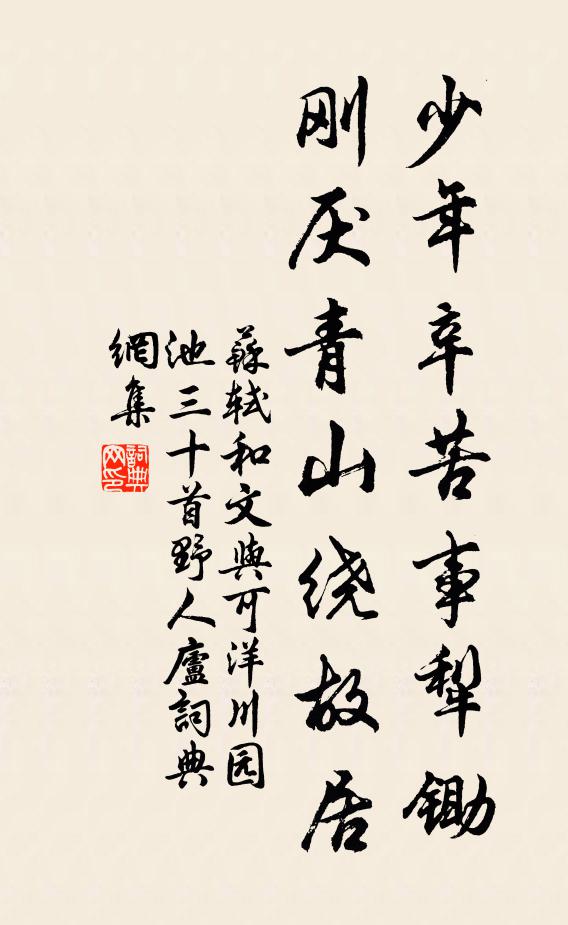 少年辛苦事犁锄
刚厌青山绕故居
蘇轼和文與可洋川园
池三十首野人廬詞典
網集
詞典
网印